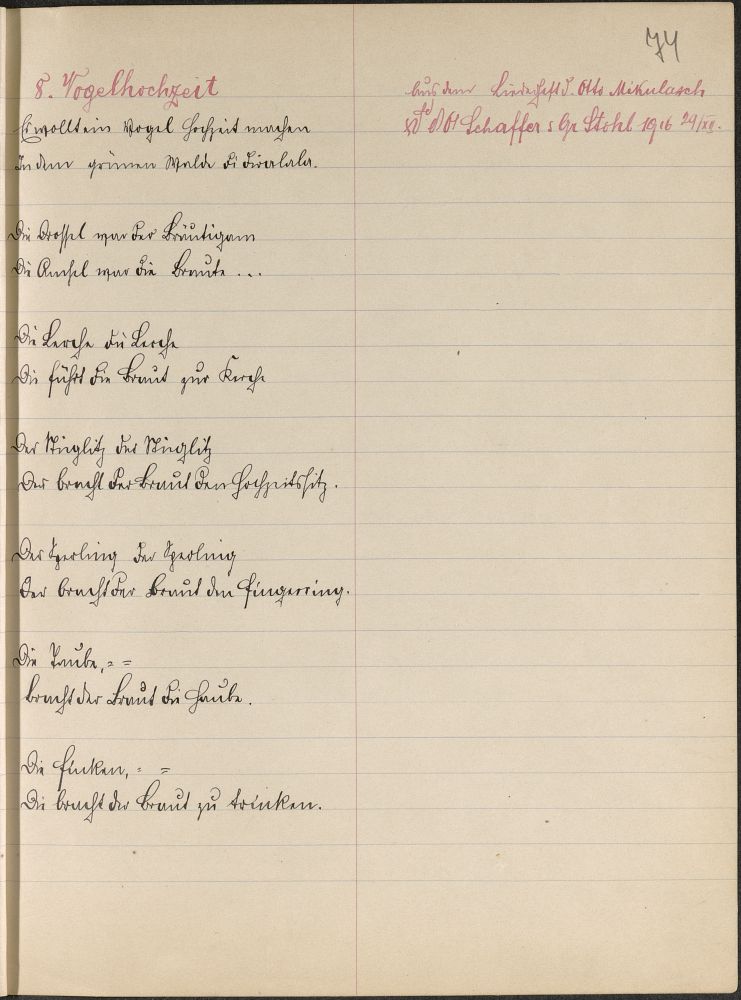 74
8. Vogelhochzeit
Es wollt ein Vogel Hochzeit machen
In dem grünen Walde di diralala.
Die Drossel war der Bräutigam
Die Amsel war die Braute ...
Die Lerche die Lerche
Die führt die Braut zur Kerche
Der Stieglitz der Stieglitz
Der bracht der Braut den Hochzeitssitz.
Der Sperling der Sperling
Der bracht der Braut den Fingerring.
Die Taube, = =
bracht der Braut die Haube.
Die Finken, = =
Die bracht der Braut zu trinken.
Aus dem Liederheft d. Otto Mikulasch
Schaffer Gr Stohl 1916 29/XII.